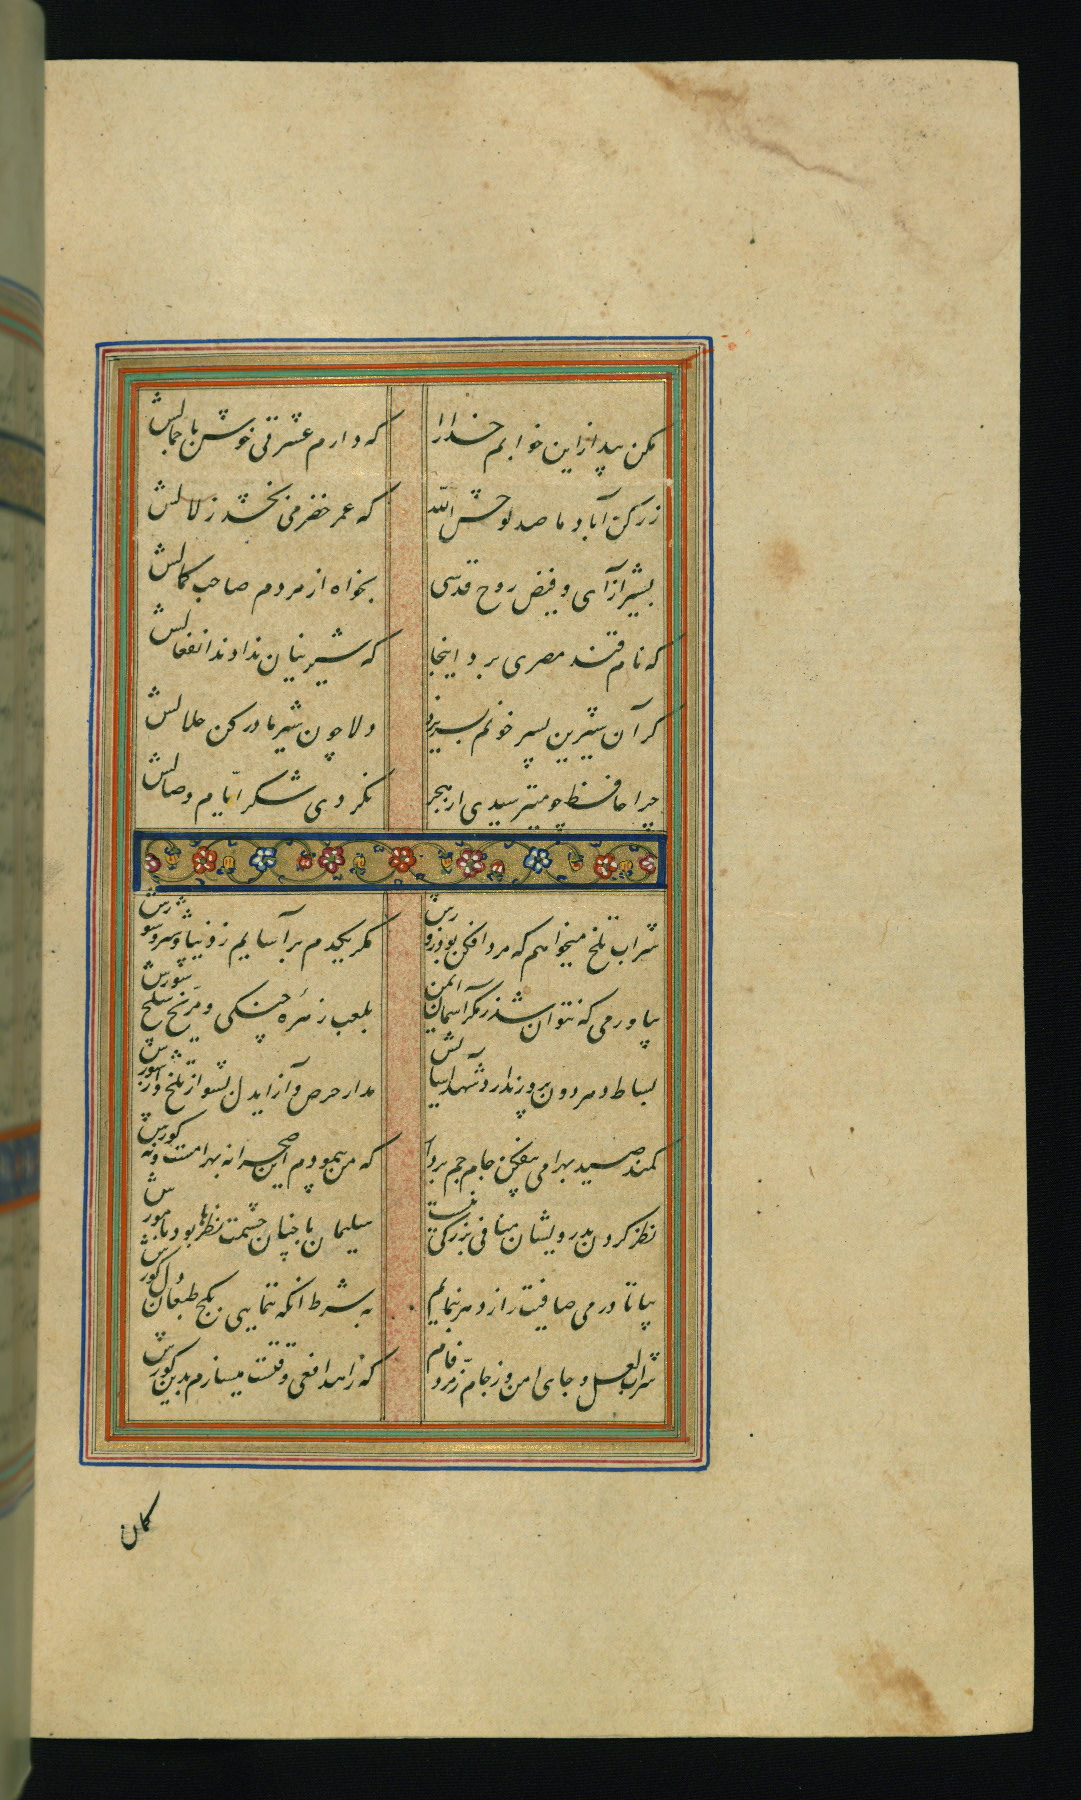 مکن بیدار ازین خوابم خدا را
که دارم عشرتی خوش با جمالش
ز رکن آباد ما صد لوحش الله
که عمر خضر می بخشد زلالش
بشیراز آی و فیض روح قدسی
بخواه از مردم صاحب کمالش
که نام قند مصری برد اینجا
که شیرینان ندادند انفعالش
گر آن شیرین پسر خونم بریزد
دلا چون شیر مادر کن حلالش
چرا حافظ چو میترسیدی از هجر
نکردی شکر ایام وصالش
شراب تلخ میخواهم که مردافکن بود زورش
مگر یکدم برآسایم ز دنیا و شر و شورش
بیاور می که نتوان شد ز مکر آسمان ایمن
بلعب زهره چنگی و مریخ سلحشورش
بساط دهر دون پرور ندارد شهد آسایش
مذاق حرص و آز ای دل بشو از تلخ و از شورش
کمند صید بهرامی بیفکن جام جم بردار
که من پیمودم این صحرا نه بهرامست و نه گورش
نظر کردن بدرویشان منافی بزرگی نیست
سلیمان با چنان حشمت نظرها بود با مورش
بیا تا در می صافیت راز دهر بنمایم
به شرط آنکه ننمایی بکج طبعان دل کورش
شراب لعل و جای امن و ز جام زمرد فام
که زاهد افعی وقتست میسازم بدین کورش
کمان